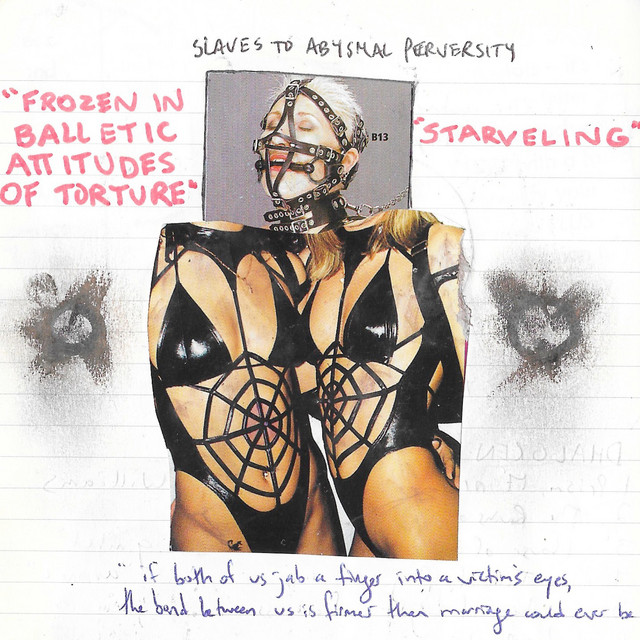 SLAVES TO ABYSMAL PERVERSITY
"FROZEN IN
BALLETIC
ATTITUDES
OF TORTURE"
B13
"STARVELING"
"if both of us jab a finger into a victim's eyes,
the bond between us is firmer than marriage could ever be